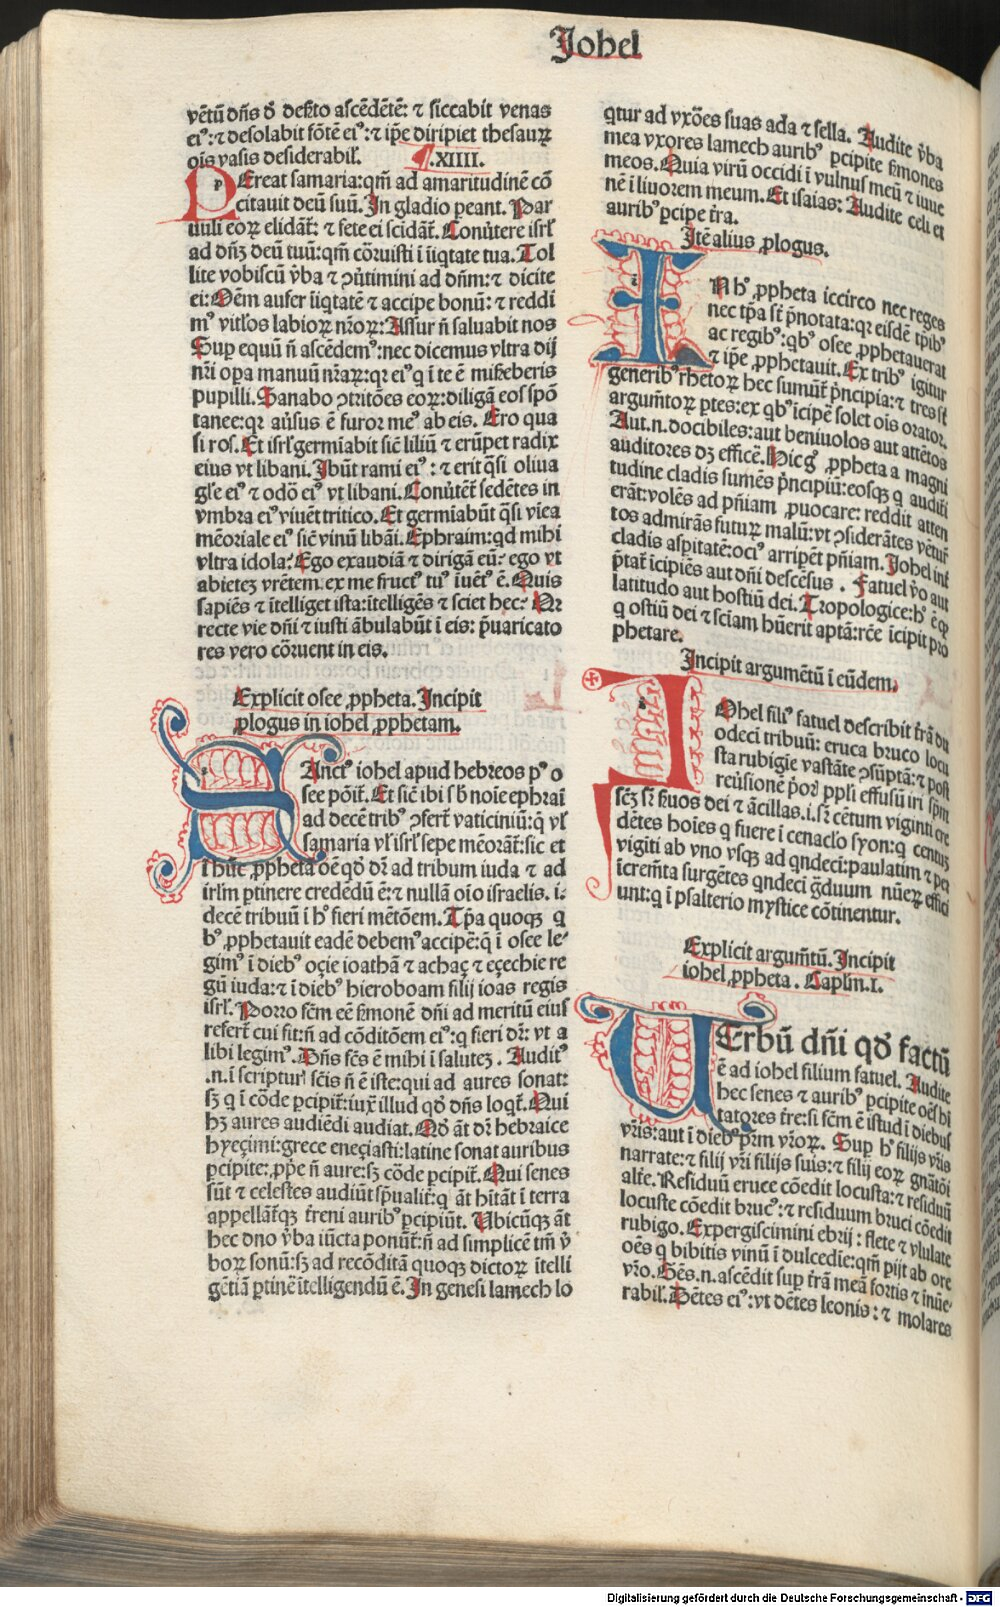 Johel
vētū dn̄s d̄ deẜto aſcēdētē: ⁊ ſiccabit venas
eiꝰ: ⁊ deſolabit fōtē eiꝰ: ⁊ ip̄e diripiet theſauꝝ
oīs vaſis deſiderabil̄. ¶.XIIII.
PEreat ſamaria: qm̄ ad amaritudinē cō
citauit deū ſuū. In gladio ꝑeant. Par
uuli eoꝝ elidāt̄: ⁊ fete ei ſcidāt̄. Conꝟtere iſrl̄
ad dn̄ꝫ deū tuū: qm̄ cōruiſti ī iīqtate tua. Tol
lite vobiſcū v̄ba ⁊ ꝯꝟtimini ad dn̄m: ⁊ dicite
ei: Oēm aufer iīqtatē ⁊ accipe bonū: ⁊ reddi
mꝰ vitl̄os labioꝝ nr̄oꝝ: Aſſur n̄ ſaluabit nos
Suꝑ equū n̄ aſcēdemꝰ: nec dicemus vltra dij
nr̄i oꝑa manuū nr̄aꝝ: qꝛ eiꝰ q ī te ē miẜeberis
pupilli. Sanabo ↄtritōes eoꝝ: diligā eoſ ſpō
tanee: qꝛ aꝟſus ē furor meꝰ ab eis. Ero qua
ſi roſ. Et iſrl̄ germīabit ſic̄ liliū ⁊ erūpet radix
eius vt libani. Ibūt rami eiꝰ: ⁊ erit q̄ſi oliua
gl̄e eiꝰ ⁊ odō eiꝰ vt libani. Conꝟtēt̄ ſedētes in
vmbra eiꝰ viuēt tritico. Et germīabūt q̄ſi vīea
mēoriale eiꝰ ſic̄ vinū libāi. Ephraim: qd mihi
vltra idola: Ego exaudiā ⁊ dirigā eū: ego vt
abietez vrētem: ex me fructꝰ tuꝰ īuētꝰ ē. Quis
ſapiēs ⁊ ītelliget iſta: ītelligēs ⁊ ſciet hec: Qꝛ
recte vie dn̄i ⁊ iuſti ābulabūt ī eis: p̄uaricato
res vero cōruent in eis.
Explicit oſee ꝓpheta. Incipit
ꝓlogus in iohel ꝓphetam.
SAnctꝰ iohel apud hebreos pꝰ o
ſee pōit̄. Et ſic̄ ibi ſb̄ noīe ephraī
ad decē tribꝰ ꝯfert̄ vaticiniū: q̄ vl̄
ſamaria vl̄ iſrl̄ ſepe mēorāt̄: ſic et
ī hūc ꝓpheta oē qd̄ dr̄ ad tribum iuda ⁊ ad
irl̄m ꝑtinere credēdū ē: ⁊ nullā oīo iſraelis. i.
decē tribuū ī hꝰ fieri mētōem. Tꝑa quoqꝫ q
bꝰ ꝓphetauit eadē debemꝰ accipē: q̄ ī oſee le-
gimꝰ ī diebꝰ oçie ioathā ⁊ achaç ⁊ eçechie re
gū iuda: ⁊ ī diebꝰ hieroboam filij ioas regis
iſrl̄. Porro ſcd̄m eē ẜmonē dn̄i ad meritū eius
refert̄ cui fit: n̄ ad cōditōem eiꝰ: q fieri dr̄: vt a
libi legimꝰ. Dn̄s fc̄s ē mihi ī ſalutez. Auditꝰ
.n. ī ſcripturꝭ ſc̄is n̄ ē iſte: qui ad aures ſonat:
ſꝫ q ī cōde ꝑcipit̄: iuxͣ illud qd̄ dn̄s loqt̄. Qui
hꝫ aures audiēdi audiat. Qd̄ āt dr̄ hebraice
hyeçimi: grece eneçiaſti: latine ſonat auribus
ꝑcipite: ꝓpe n̄ aure: ſꝫ cōde ꝑcipit̄. Qui ſenes
ſūt ⁊ celeſtes audiūt ſp̄ualit̄: q āt hītāt ī terra
appellāt̄qꝫ t̄reni auribꝰ ꝑcipiūt. Vbicūqꝫ āt
hec dno v̄ba iūcta ponūt̄: n̄ ad ſimplicē tm̄ v̄
boꝝ ſonū: ſꝫ ad recōditā quoqꝫ dictoꝝ ītelli
gētiā ꝑtinē ītelligendū ē. In geneſi lamech lo
qtur ad vxōes ſuas ada ⁊ ſella. Audite v̄ba
mea vxores lamech auribꝰ ꝑcipite ẜmones
meos. Quia virū occidi ī vulnuſ meū ⁊ iuue
nē ī liuorem meum. Et iſaias: Audite celi et
auribꝰ ꝑcipe t̄ra.
Itē alius ꝓlogus.
IN hꝰ ꝓpheta iccirco nec reges
nec tꝑa ſt̄ p̄notata: qꝛ eiſdē tꝑibꝰ
ac regibꝰ: qbꝰ oſee ꝓphetauerat
⁊ ip̄e ꝓphetauit. Ex tribꝰ igitur
generibꝰ rhetoꝝ hec ſumūt̄ p̄ncipia: ⁊ tres ſt̄
argum̄toꝝ ꝑtes: ex qbꝰ īcipē ſolet oīs orator.
Aut. n. docibiles: aut beniuolos aut attētos
auditores dꝫ efficē. Hic gͦ ꝓpheta a magni
tudine cladis ſumēs p̄ncipiū: eoſqꝫ q audiri
erāt: volēs ad pn̄iam ꝓuocare: reddit atten
tos admirās futuꝝ malū: vt ꝯſiderātes vētuꝝ
cladis aſꝑitatē: ociꝰ arripēt pn̄iam. Johel int̄
p̄tat̄ īcipiēs aut dn̄i deſcēſus. Fatuel v̄o aut
latitudo aut hoſtiū dei. Tropologice: hꝰ ē qꝫ
q oſtiū dei ⁊ ſciam hūerit aptā: rc̄e īcipit ꝓ
phetare.
Incipit argumētū ī eūdem.
IOhel filiꝰ fatuel deſcribit t̄rā du
odeci tribuū: eruca bruco locu
ſta rubigīe vaſtāte ꝯſūptā: ⁊ poſt
recūſionē p̄oꝝ ppli effuſū iri ſpm̄
ſc̄ꝫ ſꝛ ẜuos dei ⁊ ācillas. i. ſꝛ cētum viginti cre
dētes hoīes q fuere ī cenacl̄o ſyon: q centuꝫ
vigīti ab vno vſqꝫ ad qndeci: paulatim ⁊ ꝑ
īcrem̄ta ſurgētes qndeci gͣduum nūeꝝ effici
unt: q ī pſalterio myſtice cōtinentur.
Explicit argum̄tū. Incipit
iohel ꝓpheta. Caplm̄. I.
VErbū dn̄i qd̄ factū
ē ad iohel filium fatuel. Audite
hec ſenes ⁊ auribꝰ ꝑcipite oēſ hī
tatores t̄re: ſi fc̄m ē iſtud ī diebus
vr̄is: aut ī diebꝰ pr̄m vr̄oꝝ. Suꝑ hꝰ filijs vr̄is
narrate: ⁊ filij vr̄i filijs ſuis: ⁊ filij eoꝝ gn̄atōi
alt̄e. Reſiduū eruce cōedit locuſta: ⁊ reſiduū
locuſte cōedit brucꝰ: ⁊ reſiduum bruci cōedit
rubigo. Expergiſcimini ebrij: flete ⁊ vlulate
oēs q bibitis vinū ī dulcedīe: qm̄ pijt ab ore
vr̄o. Gēs. n. aſcēdit ſuꝑ t̄rā meā fortis ⁊ īnūe-
rabil̄. Dētes eiꝰ: vt dētes leonis: ⁊ molares
Digitalisierung gefördert durch die Deutsche Forschungsgemeinschaft - DFG